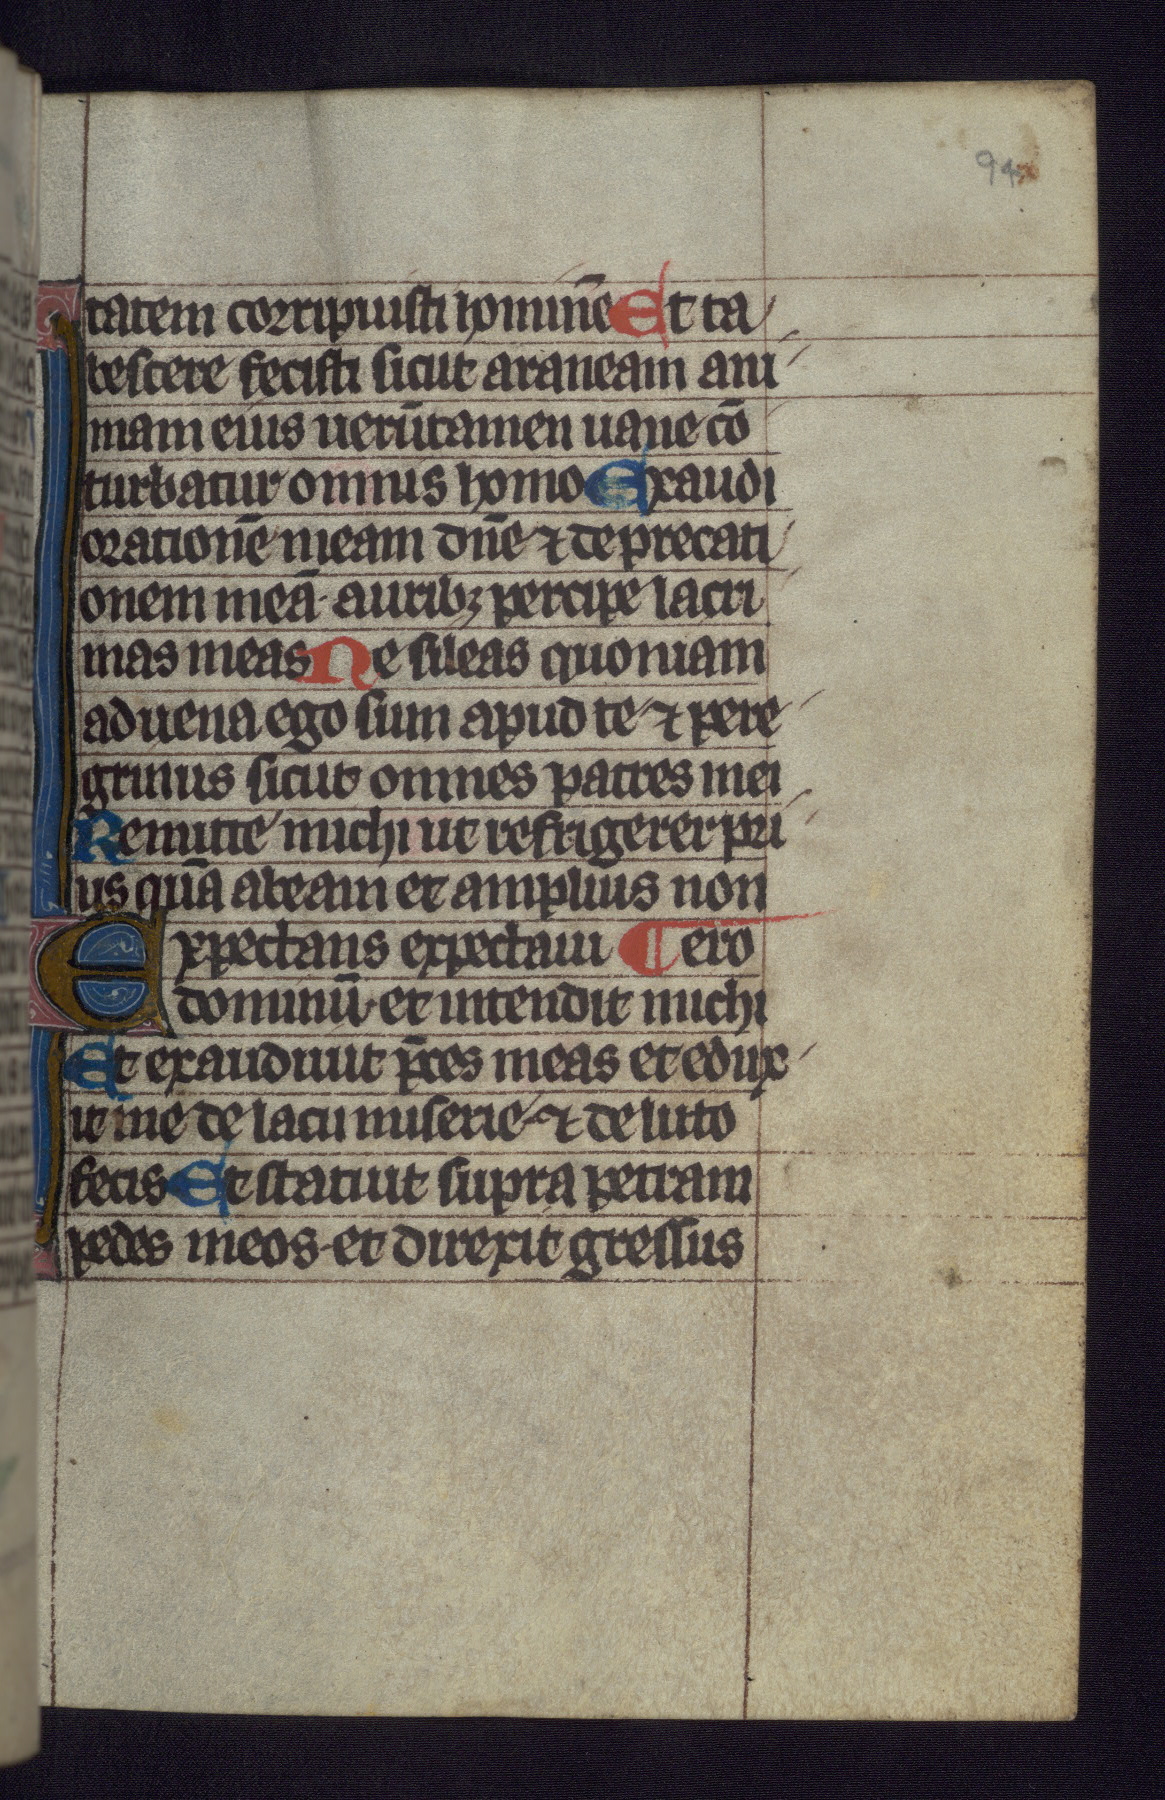 94
tatem corripuisti hominē Et ta
bescere fecisti sicut araneam ani
mam eius uerūtamen uane cō
turbatur omnis homo Exaudi
orationē meam dn̄e ⁊ deprecati
onem meā auribꝫ percipe lacri
mas meas Ne sileas quoniam
aduena ego sum apud te ⁊ pere
grinus sicut omnes patres mei
Remitte michi ut refrigerer pri
us quā abeam et amplius non
Expectans expectaui ¶ ero
dominū et intendit michi
Et exaudiuit p̄ces meas et edux
it me de lacu miserie ⁊ de luto
fecis Et statuit supra petram
pedes meos et direxit gressus